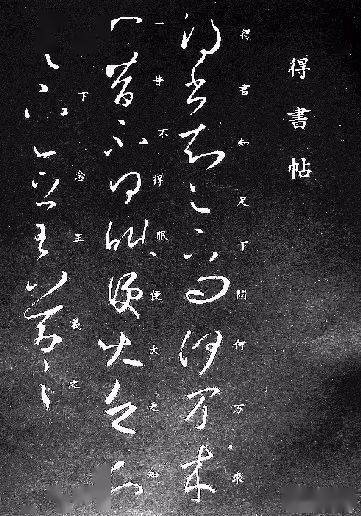 得書帖
得書知足下問何万來
一昔不得眠便大
下念王羲之